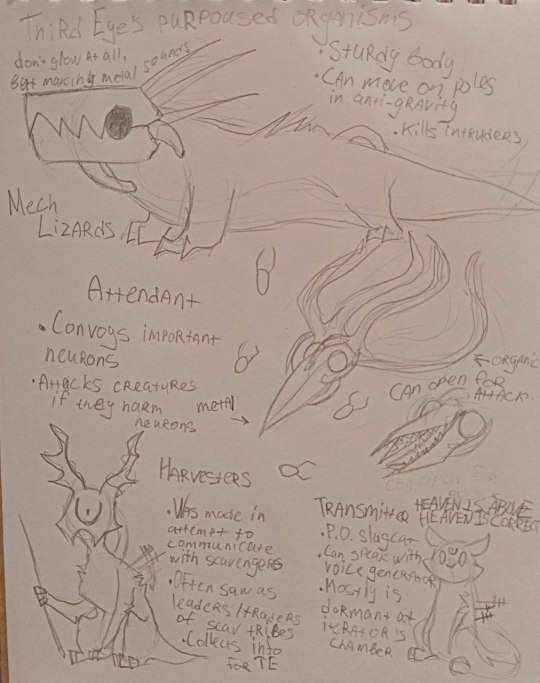 Third Eye's purpoused organisms
don't glow at all,
but making metal sounds
• Sturdy body
• Can move on poles
in anti-gravity
• Kills intruders
Mech
Lizards
Attendant
• Convoys important
neurons
• Attacks creatures
if they harm
neurons
metal
organic
can open for
attack
Harvesters
• Was made in
attempt to
communicate
with scavengers
• Often saw as
leaders/traders
of scav tribes
• Collects info
for TE
Transmitter
HEAVEN IS ABOVE
HEAVEN IS CORRECT
• P.O. slugcat
• Can speak with
voice generator
• Mostly is
dormant at
iterator's
chamber